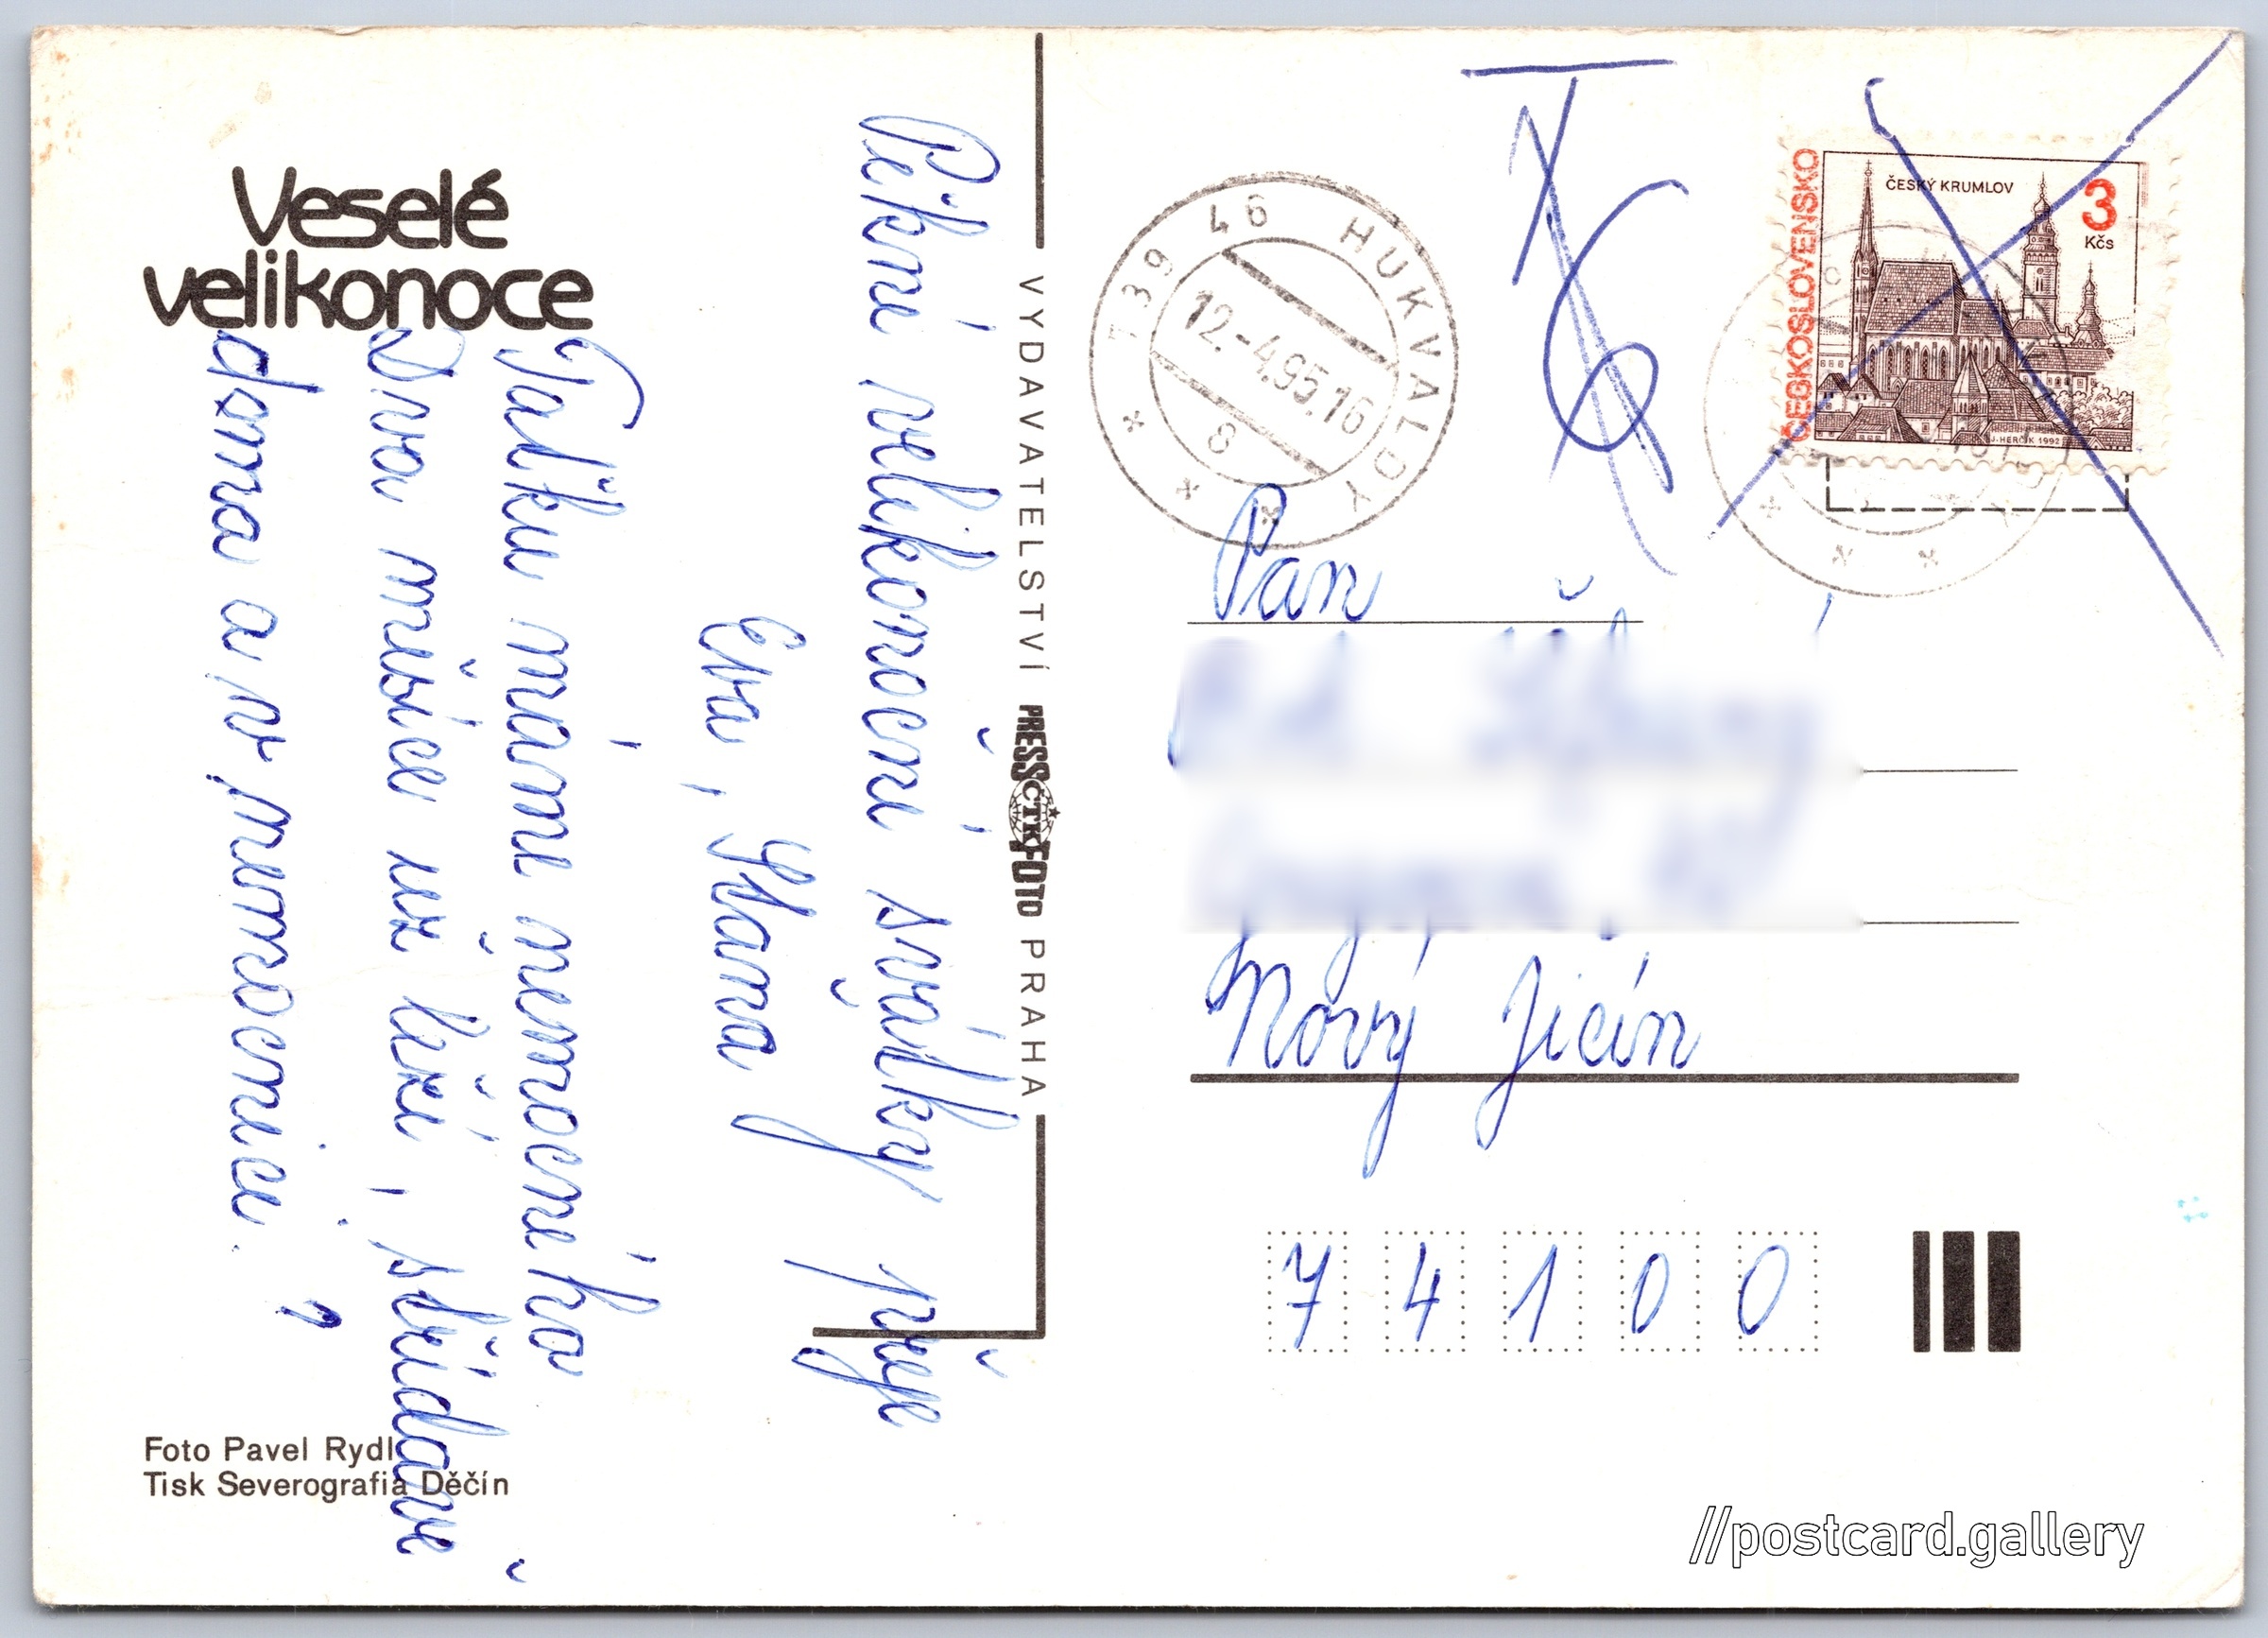 Veselé
velikonoce
Pěkné velikonoční svátky přeje
Eva, Hana
Taťku máme nemocného
Dva měsíce už leží, střídavě
doma a v nemocnici.
Foto Pavel Rydl
Tisk Severografia Děčín
VYDAVATELSTVÍ PRESSFOTO PRAHA
ČTK
739 46 HUKVALDY
12.-4.95.16
8
T
ČESKOSLOVENSKO
ČESKÝ KRUMLOV
3
Kčs
J. HERČÍK 1992
Pan
Nový Jičín
74100
//postcard.gallery